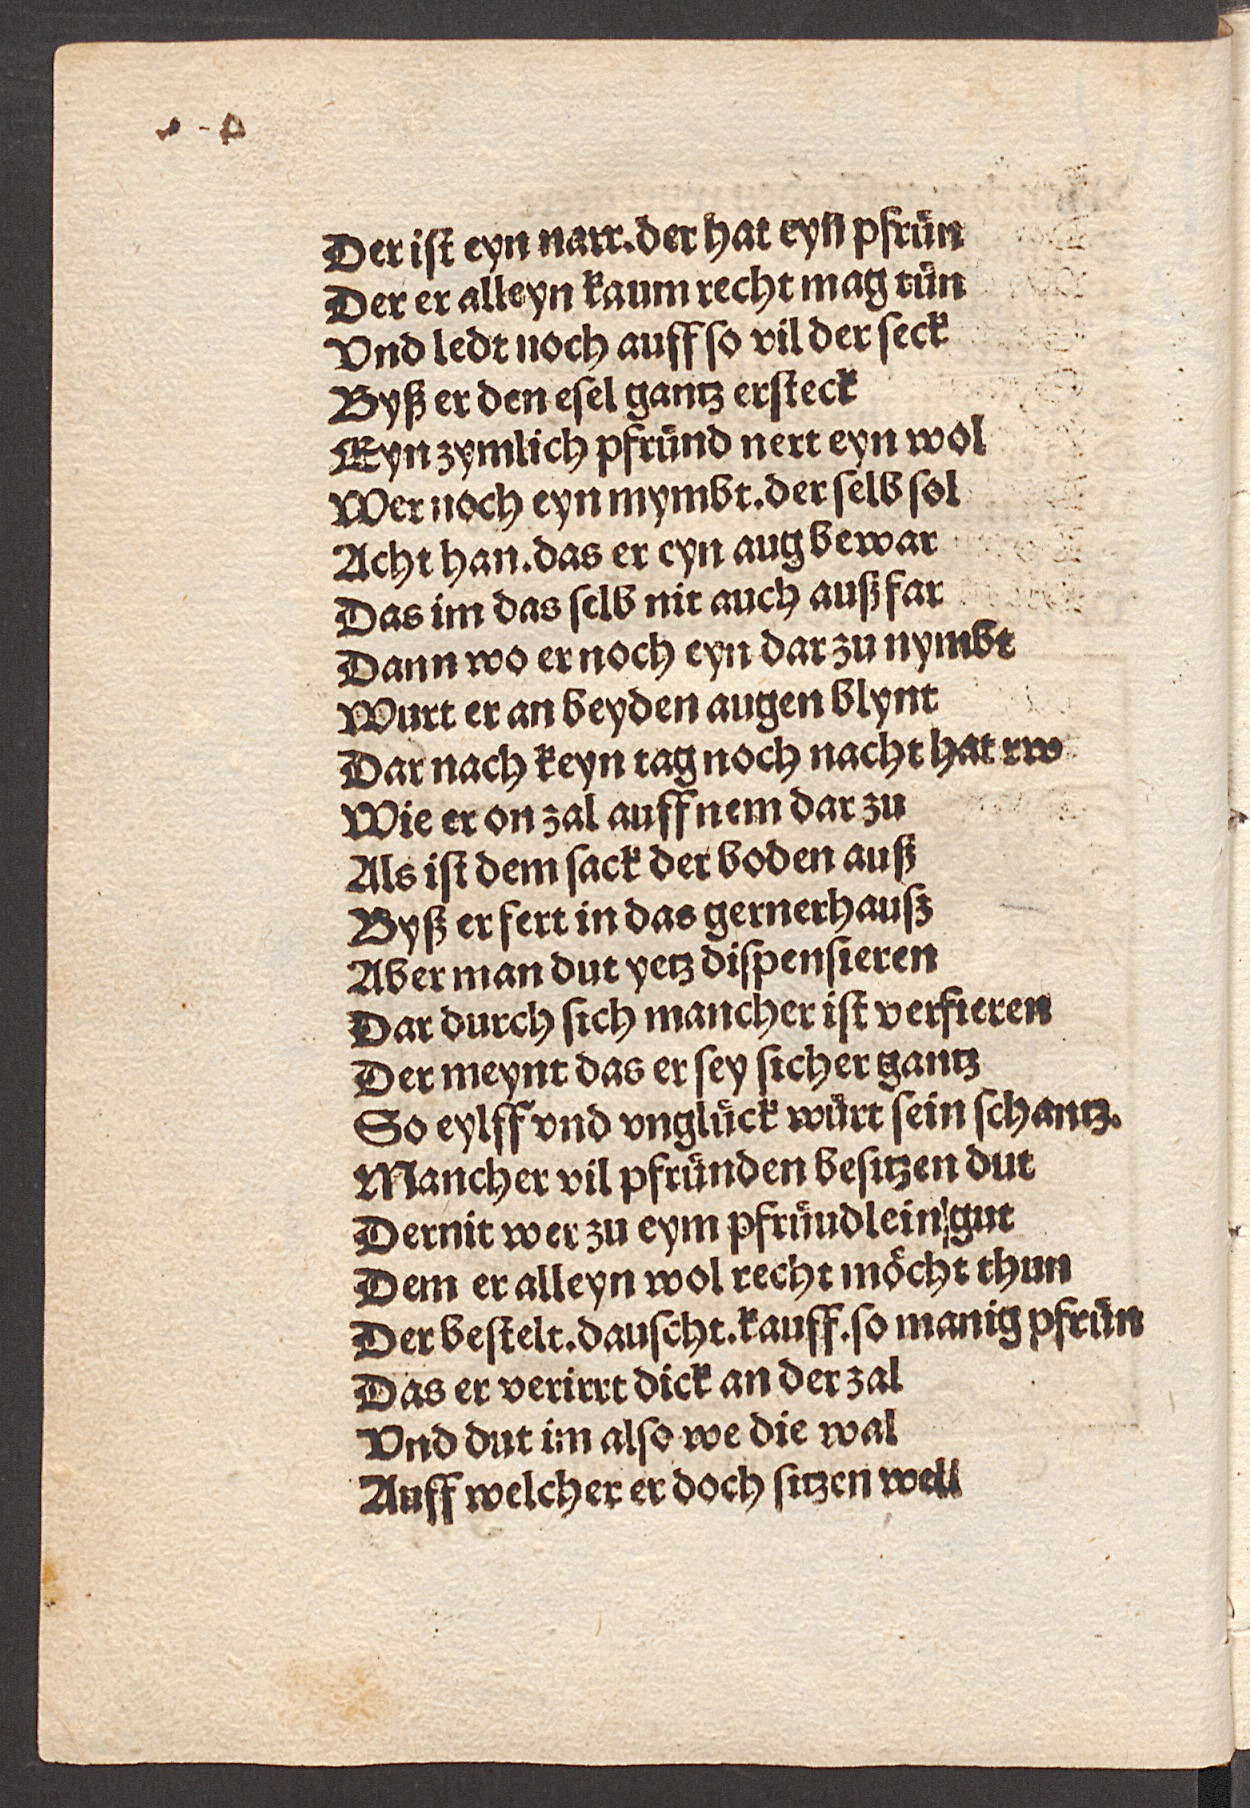 Der ist eyn narr.der hat eyn pfrün
Der er alleyn kaum recht mag tün
Vnd ledt noch auff so vil der seck
Byß er den esel gantz ersteck
Eyn zymlich pfründ nert eyn wol
Wer noch eyn mymbt.der selb sol
Acht han.das er eyn aug bewar
Das im das selb nit auch außfar
Dann wo er noch eyn dar zu nymbt
Wurt er an beyden augen blynt
Dar nach keyn tag noch nacht hat rw
Wie er on zal auffnem dar zu
Als ist dem sack der boden auß
Byß er fert in das gernerhauß
Aber man dut yetz dispensieren
Dar durch sich mancher ist verfieren
Der meynt das er sey sicher gantz
So eylff vnd vnglück würt sein schantz.
Mancher vil pfründen besitzen dut
Dernit wer zu eym pfrüudlein gut
Dem er alleyn wol recht möcht thun
Der bestelt.dauscht.kauff.so manig pfrün
Das er verirrt dick an der zal
Vnd dut im also we die wal
Auff welcher er doch sitzen well